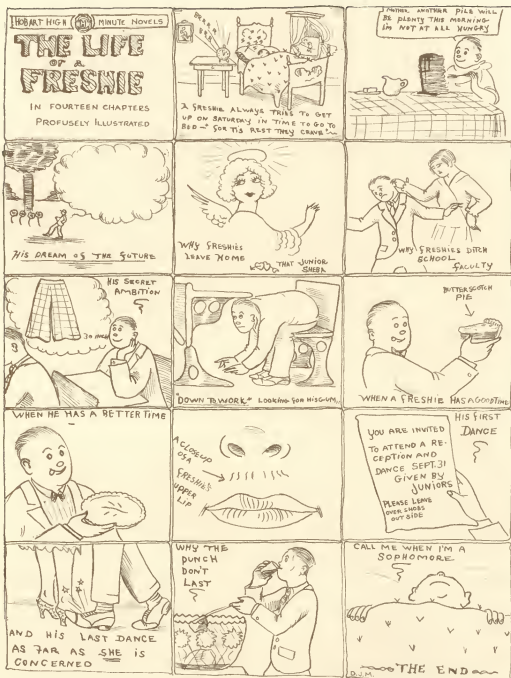 HOBART HIGH MINUTE NOVELS
THE LIFE
OF A
FRESHIE
IN FOURTEEN CHAPTERS
PROFUSELY ILLUSTRATED
A FRESHIE ALWAYS TRIES TO GET
UP ON SATURDAY IN TIME TO GO TO
BED — "FOR TIS REST THEY CRAVE"
MOTHER ANOTHER PILE WILL
BE PLENTY THIS MORNING
I'M NOT AT ALL HUNGRY
HIS DREAM OF THE FUTURE
WHY FRESHIES
LEAVE HOME
THAT JUNIOR
SHEBA
WHY FRESHIES DITCH
SCHOOL
FACULTY
HIS SECRET
AMBITION
30 INCH
"DOWN TO WORK" LOOKING FOR HIS GUM
BUTTERSCOTCH
PIE
WHEN A FRESHIE HAS A GOOD TIME
WHEN HE HAS A BETTER TIME
A CLOSEUP
OF A
FRESHIE'S
UPPER
LIP
YOU ARE INVITED
TO ATTEND A RE-
CEPTION AND
DANCE SEPT. 31
GIVEN BY
JUNIORS
PLEASE LEAVE
OVER SHOES
OUT SIDE
HIS FIRST
DANCE
AND HIS LAST DANCE
AS FAR AS SHE IS
CONCERNED
WHY THE
PUNCH
DON'T
LAST
CALL ME WHEN I'M A
SOPHOMORE
THE END
D.J.M.